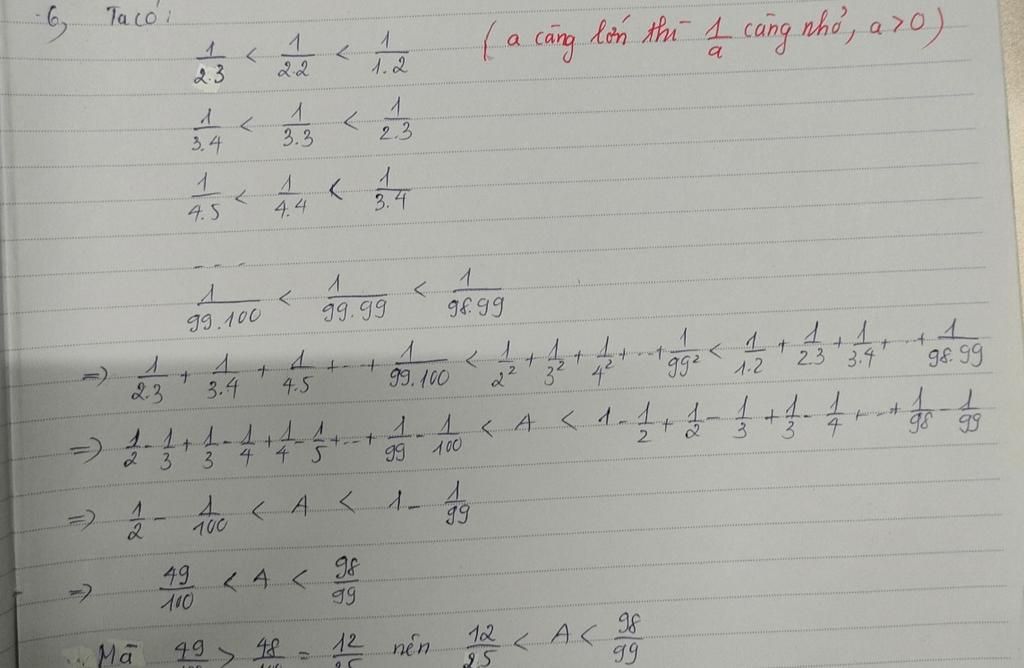 6, Ta có: 
1/2.3 < 1/2.2 < 1/1.2 ( a càng lớn thì 1/a càng nhỏ, a > 0 )
1/3.4 < 1/3.3 < 1/2.3
1/4.5 < 1/4.4 < 1/3.4
---
1/99.100 < 1/99.99 < 1/98.99
=> 1/2.3 + 1/3.4 + 1/4.5 + ... + 1/99.100 < 1/2² + 1/3² + 1/4² + ... + 1/99² < 1/1.2 + 1/2.3 + 1/3.4 + ... + 1/98.99
=> 1/2 - 1/3 + 1/3 - 1/4 + 1/4 - 1/5 + ... + 1/99 - 1/100 < A < 1 - 1/2 + 1/2 - 1/3 + 1/3 - 1/4 + ... + 1/98 - 1/99
=> 1/2 - 1/100 < A < 1 - 1/99
=> 49/100 < A < 98/99
Mà 49/100 > 48/100 = 12/25 nên 12/25 < A < 98/99